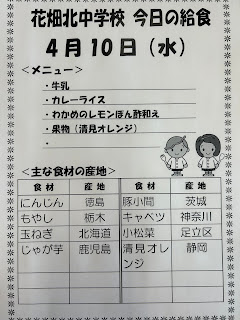 花畑北中学校 今日の給食
4月10日（水）
＜メニュー＞
・牛乳
・カレーライス
・わかめのレモンぽん酢和え
・果物（清見オレンジ）
・
＜主な食材の産地＞
食材 産地 食材 産地
にんじん 徳島 豚小間 茨城
もやし 栃木 キャベツ 神奈川
玉ねぎ 北海道 小松菜 足立区
じゃが芋 鹿児島 清見オレンジ 静岡